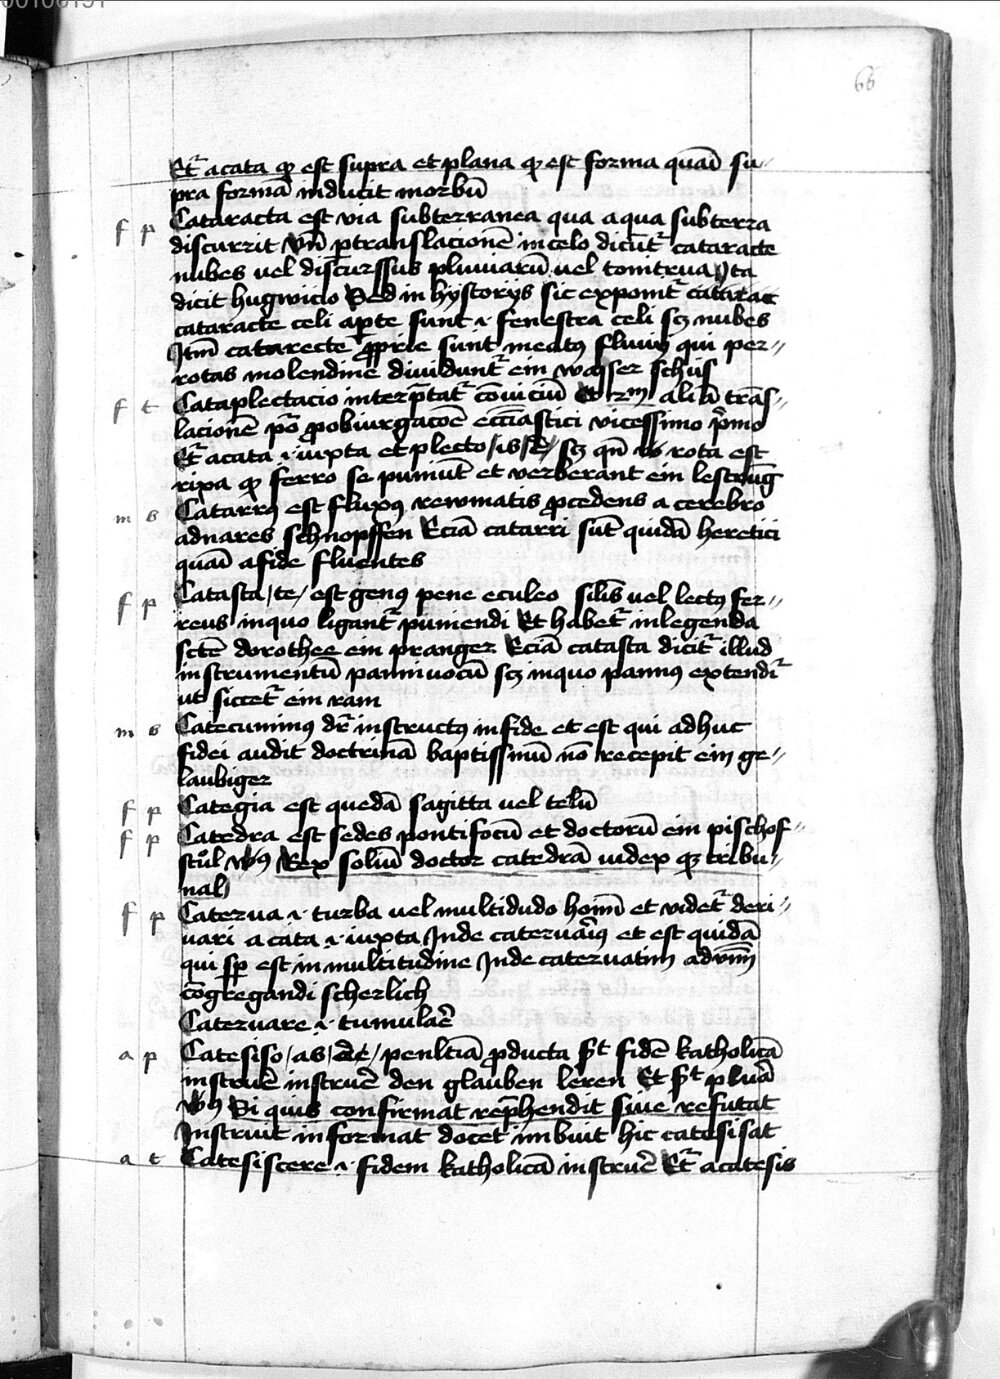 66
Et͛ acata qđ est supra et plana qđ est forma quaȝ su⸗
pra formā inducit morbū
f p Cataracta est via subterranea qua aqua subterra
discurrit Vn̄ ꝑtranslacionē in celo dicūt͛ cataracte
nubes vel discurssus pluuiarū vel tonitrua Ita
dicit hugwicio Sed in hystorijs sic exponit͛ catarac
cataracte celi aꝑte sunt ·i· fenestra celi sꝫ nubes
Itm̄ catarecte ꝓprie sunt meatꝰ fluuij qui per⸗
rotas molendine diuidunt͛ ein wasser schus
f t Cataplectacio interp̄tat͛ cōuiciū alia trās⸗
lacionē ꝓobiurgacoē ecc̄iastici vicessimo p̄mo
Et͛ acata ·i· iuxta et plecto /is/ sꝫ qn̄ rota est
rixa qđ ferro se puniūt et verberant ein lestrūg
m s Catarrꝰ est fluxꝰ rewmatis ꝓcedens a cerebro
adnares schnopffen Eciā catarri sūt quidā heretici
quaȝ afide fluentes
f p Catasta /te/ est genꝰ pene eculeo silis̄ vel lectꝰ fer⸗
reus inquo ligant͛ puniendi Et habet͛ inlegenda
sctē dorothee ein pranger Eciā catasta dicit͛ illud
instrumentū pannivocū sꝫ inquo pannꝰ extendit͛
ut siccet͛ ein ram
m s Catecuminꝰ dr̄ instructꝰ infide et est qui adhuc
fidei audit doctrinā baptissmū nō recepit ein ge⸗
laubiger
f p Categia est quedā sagitta vel telū
f p Catedra est sedes pontifocū et doctorū ein pischof⸗
stůl vsꝰ Rex soliū doctor catedrā iudex qꝫ tribu⸗
nal
f p Caterua ·i· turba vel multidudo hoīm et videt͛ deri⸗
uari a cata ·i· iuxta Inde cateruaīꝰ et est quidā
qui sꝑ est in multitudine Inde cateruatim aduīm
cōgregandi scherlich
Cateruare ·i· tumulaē
a p Catesiso /as/ penltīa ꝓducta fidē katholicā
instruē instruē den glauben leren Et
vsꝰ Si quis confirmat rep̄hendit siue refutat
Instruit informat docet imbuit hic catesisat
a t Catesiscere ·i· fidem katholicā instruē Et͛ acatesis